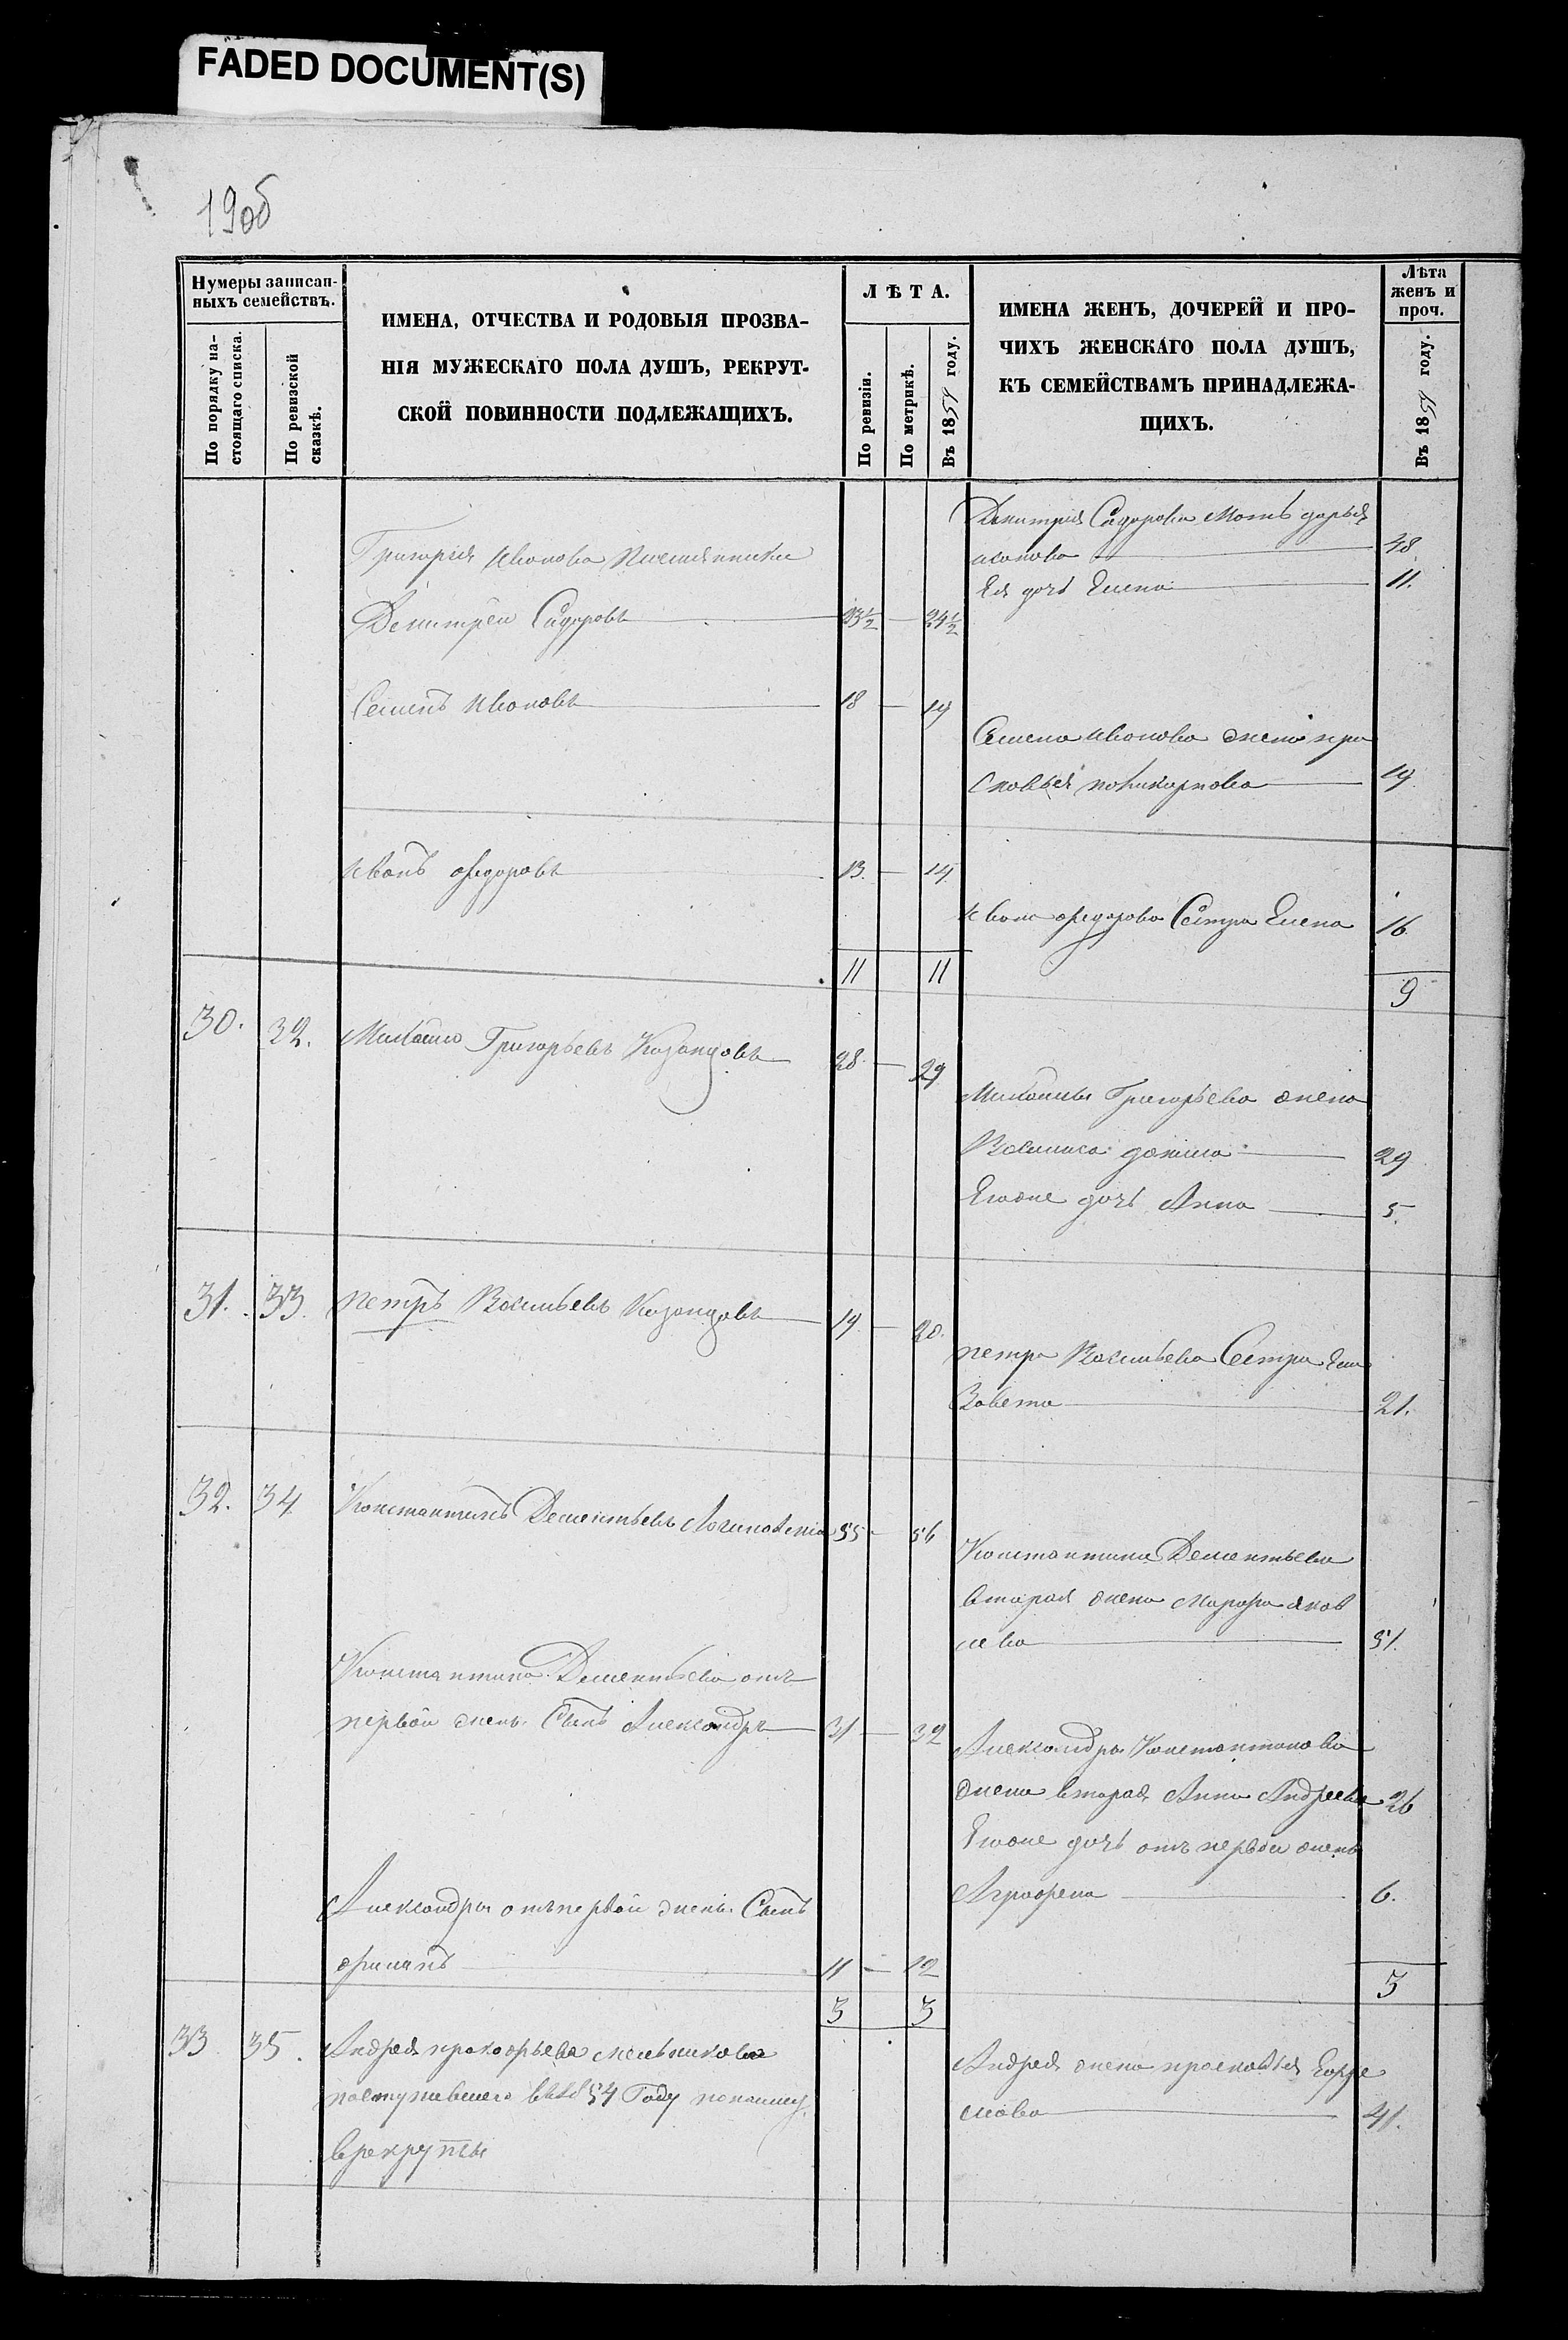 FADED DOCUMENT(S)
190б
Нумеры записан-
ныхъ семействъ.
По порядку на-
стоящаго списка.
По ревизской
сказкѣ.
ИМЕНА, ОТЧЕСТВА И РОДОВЫЯ ПРОЗВА-
НІЯ МУЖЕСКАГО ПОЛА ДУШЪ, РЕКРУТ-
СКОЙ ПОВИННОСТИ ПОДЛЕЖАЩИХЪ.
ЛѢТА.
По ревизіи.
По метрикѣ.
Въ 1851 году.
ИМЕНА ЖЕНЪ, ДОЧЕРЕЙ И ПРО-
ЧИХЪ ЖЕНСКАГО ПОЛА ДУШЪ,
КЪ СЕМЕЙСТВАМЪ ПРИНАДЛЕЖА-
ЩИХЪ.
Лѣта
женъ и
проч.
Въ 1851 году.
Дмитрія Сидорова Мать дарья
иванова 48.
Ея дочь Елена 11.
Григорія Иванова Племянники
Дмитрей Сидоровъ 23½ — 24½
Семенъ Ивановъ 18 — 19
Семена Иванова жена пра
сковья поликарпова 19
Иванъ Федоровъ 13. — 14.
Ивана Федорова Сестра Елена 16
11 11 9
30. 32. Михайло Григорьевъ Казанцовъ 28 — 29
Михайлы Григорьева жена
Василиса 29
Егоже дочь Анна 5.
31. 33. петръ Васильевъ Казанцовъ 19 — 20.
петра Васильева Сестра Ели
Завета 21.
32. 34 Константинъ Дементьевъ 55 — 56
Константина Дементьева
вторая жена Марфа яков
лева 51.
Константина Дементьева отъ
первой жены Сынъ Александръ 31 — 32
Александры Константинова
жена вторая Анна Андреева 26
Егоже дочь отъ первой жены
Аграфена 6.
Александры отъ первой жены Сынъ
филипъ 11 — 12
3 3 3
33 35. Андрея прокофьева мельникова
поступившего в 1854 Году по найму
в рекруты
Андрея жена прасковья Ефре
мова 41.